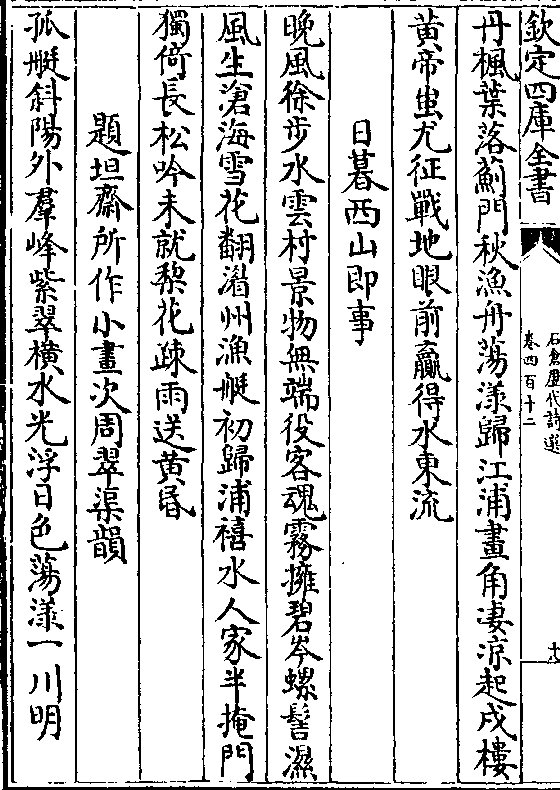 欽定四庫全書
石倉歷代詩選
卷四百十二
丹楓葉落薊門秋漁舟蕩漾歸江浦畫角淒涼起戍樓
黄帝蚩尤征戰地眼前贏得水東流
日暮西山即事
晚風徐步水雲村景物無端役客魂霧擁碧岑螺髻濕
風生滄海雪花翻潞州漁艇初歸浦禧水人家半掩門
獨倚長松吟未就棃花疎雨送黄昏
題坦齋所作小畫次周翠渠韻
孤艇斜陽外羣峰紫翠横水光浮日色蕩漾一川明